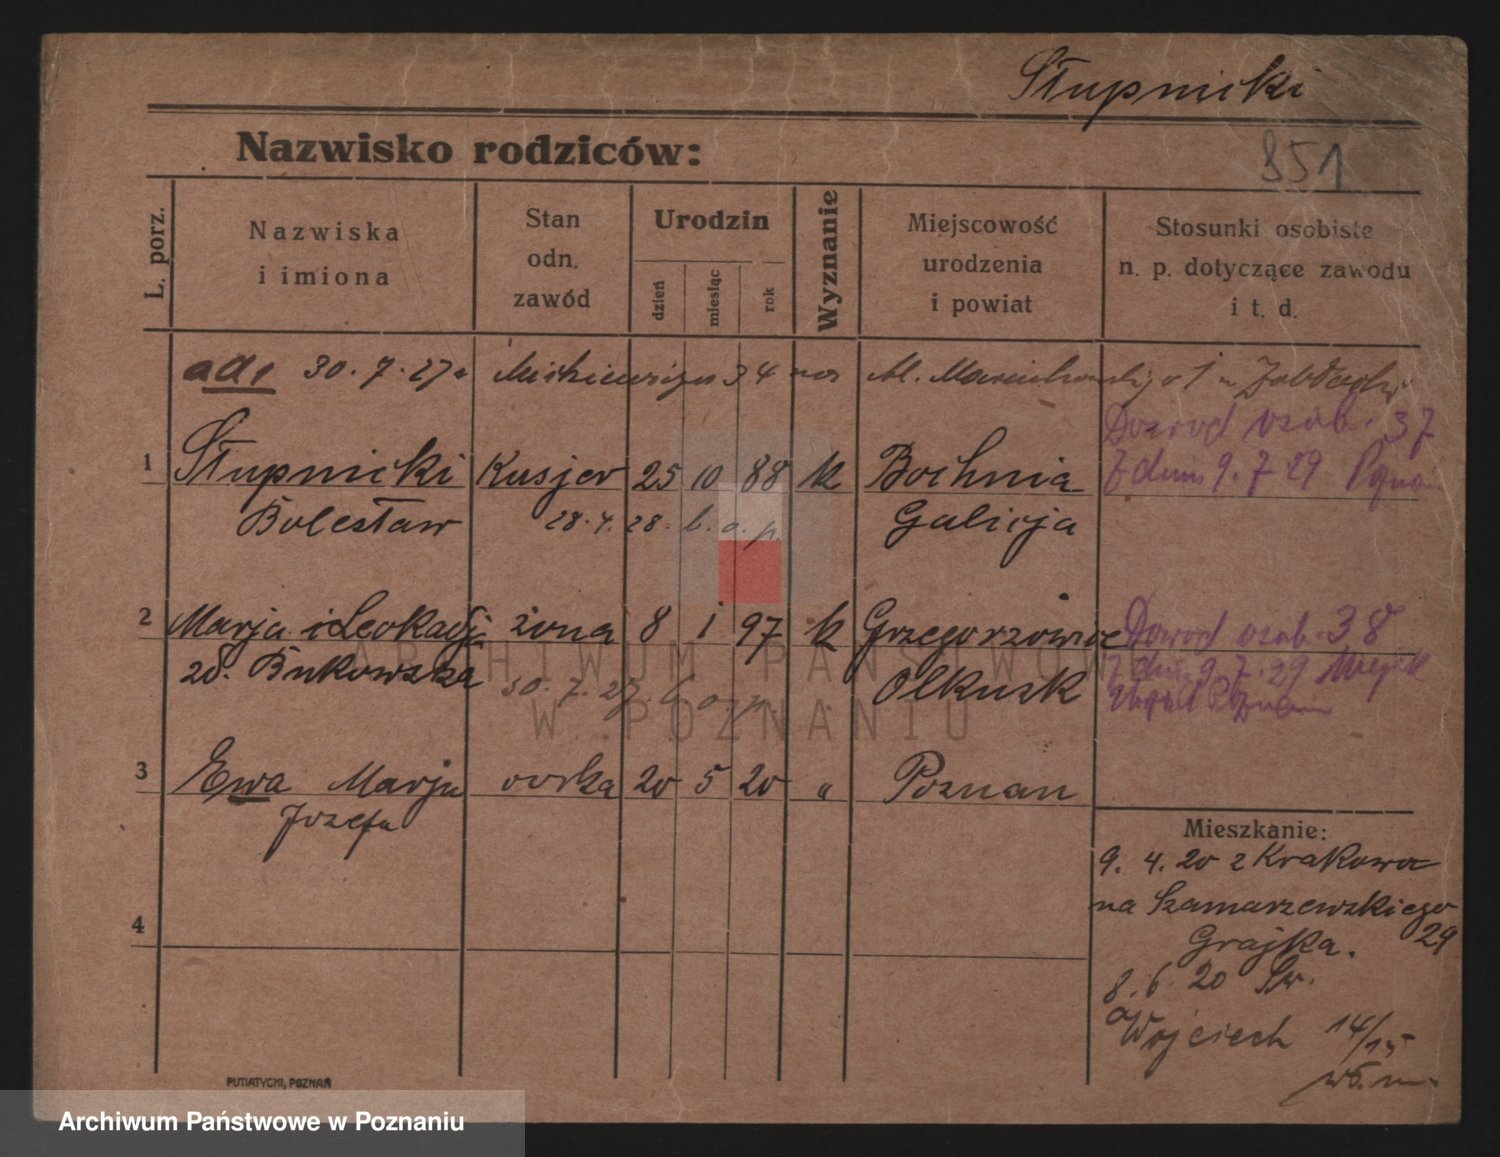 Słupnicki
Nazwisko rodziców:
851
L. porz.
Nazwiska
i imiona
Stan
odn.
zawód
Urodzin
dzień
miesiąc
rok
Wyznanie
Miejscowość
urodzenia
i powiat
Stosunki osobiste
n. p. dotyczące zawodu
i t. d.
ad 1 30.7.27 34 na M. 1
Dowod osob. 37
1 Słupnicki Kusjer 25 10 88 k Bochnia
z dnia 9.7.29
Bolesław 28.4.28. b. o. p. Galicja
2 Marja i Leokadja żona 8 1 97 k Grzegorzowice
Dowod osob. 38
zd. Bukowska 30.7.27 b. o. p. Olkusk
z dnia 9.7.29 Miejsk
Urząd Poznan
ARCHIWUM PAŃSTWOWE
W POZNANIU
3 Ewa Marja corka 20 5 20 " Poznan
Jozefa
4
Mieszkanie:
9. 4. 20 z Krakowa
na Szamarzewskiego
29
Grajka.
8. 6. 20 Św.
Wojciech 14/15
PUTIATYCKI, POZNAŃ
Archiwum Państwowe w Poznaniu